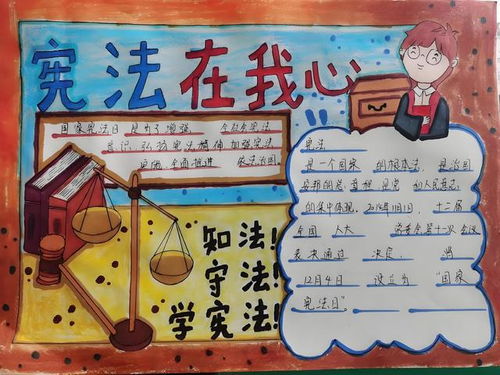 宪法在我心
国家宪法日 是为了增强 全社会宪法
意识 弘扬宪法精神 加强宪法
实施 全面推进 依法治国
知法!
守法!
学宪法!
宪法
是一个国家 的根本法, 是治国
安邦的总章程,是党 和人民意志
的集中体现。2014年11月1日,十二届
全国 人大 常委会第十一次 会议
表决通过 决定, 将
12月4日 设立为 “国家
宪法日”